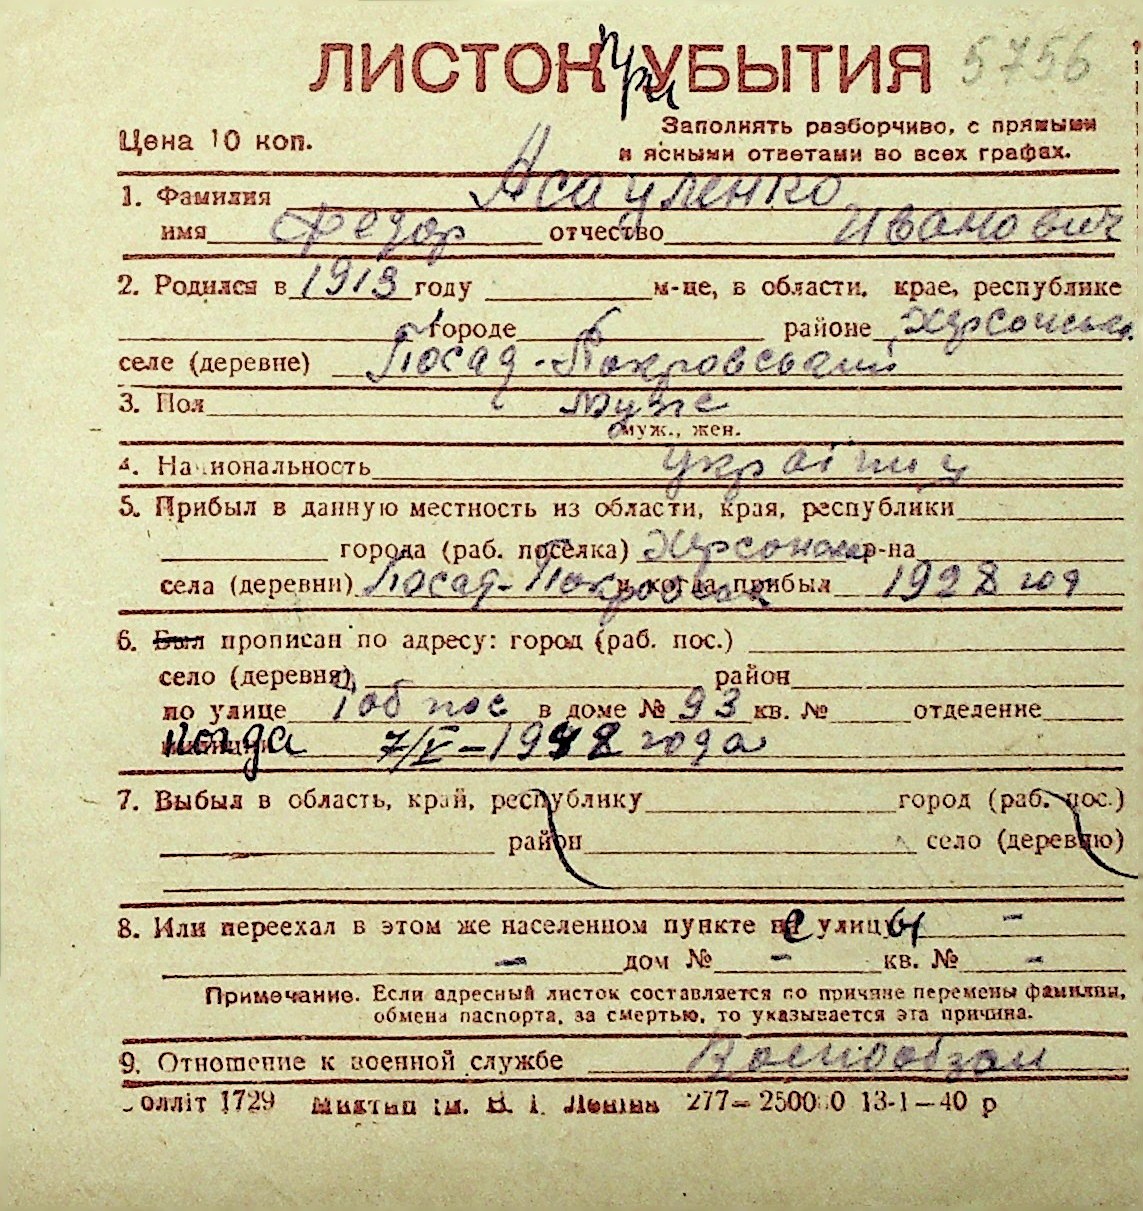 ЛИСТОК при УБЫТИЯ 5756
Цена 10 коп.
Заполнять разборчиво, с прямыми
и ясными ответами во всех графах.
1. Фамилия Асауленко
имя Федор отчество Иванович
2. Родился в 1913 году м-це, в области, крае, республике
городе районе
селе (деревне) Посад-Покровський
3. Пол Муже
муж., жен.
4. Национальность українц
5. Прибыл в данную местность из области, края, республики
города (раб. поселка) р-на
села (деревни) Посад- и когда прибыл 1928 год
6. Был прописан по адресу: город (раб. пос.)
село (деревня) район
по улице Раб пос в доме № 93 кв. № отделение
когда 7/V-1942 года
7. Выбыл в область, край, республику город (раб. пос.)
район село (деревню)
8. Или переехал в этом же населенном пункте с улицы -
- дом № - кв. № -
Примечание. Если адресный листок составляется по причине перемены фамилии,
обмена паспорта, за смертью, то указывается эта причина.
9. Отношение к военной службе Военнообзан
оллiт 1729 iм. В. I. Ленiна 277— 13-1—40 р